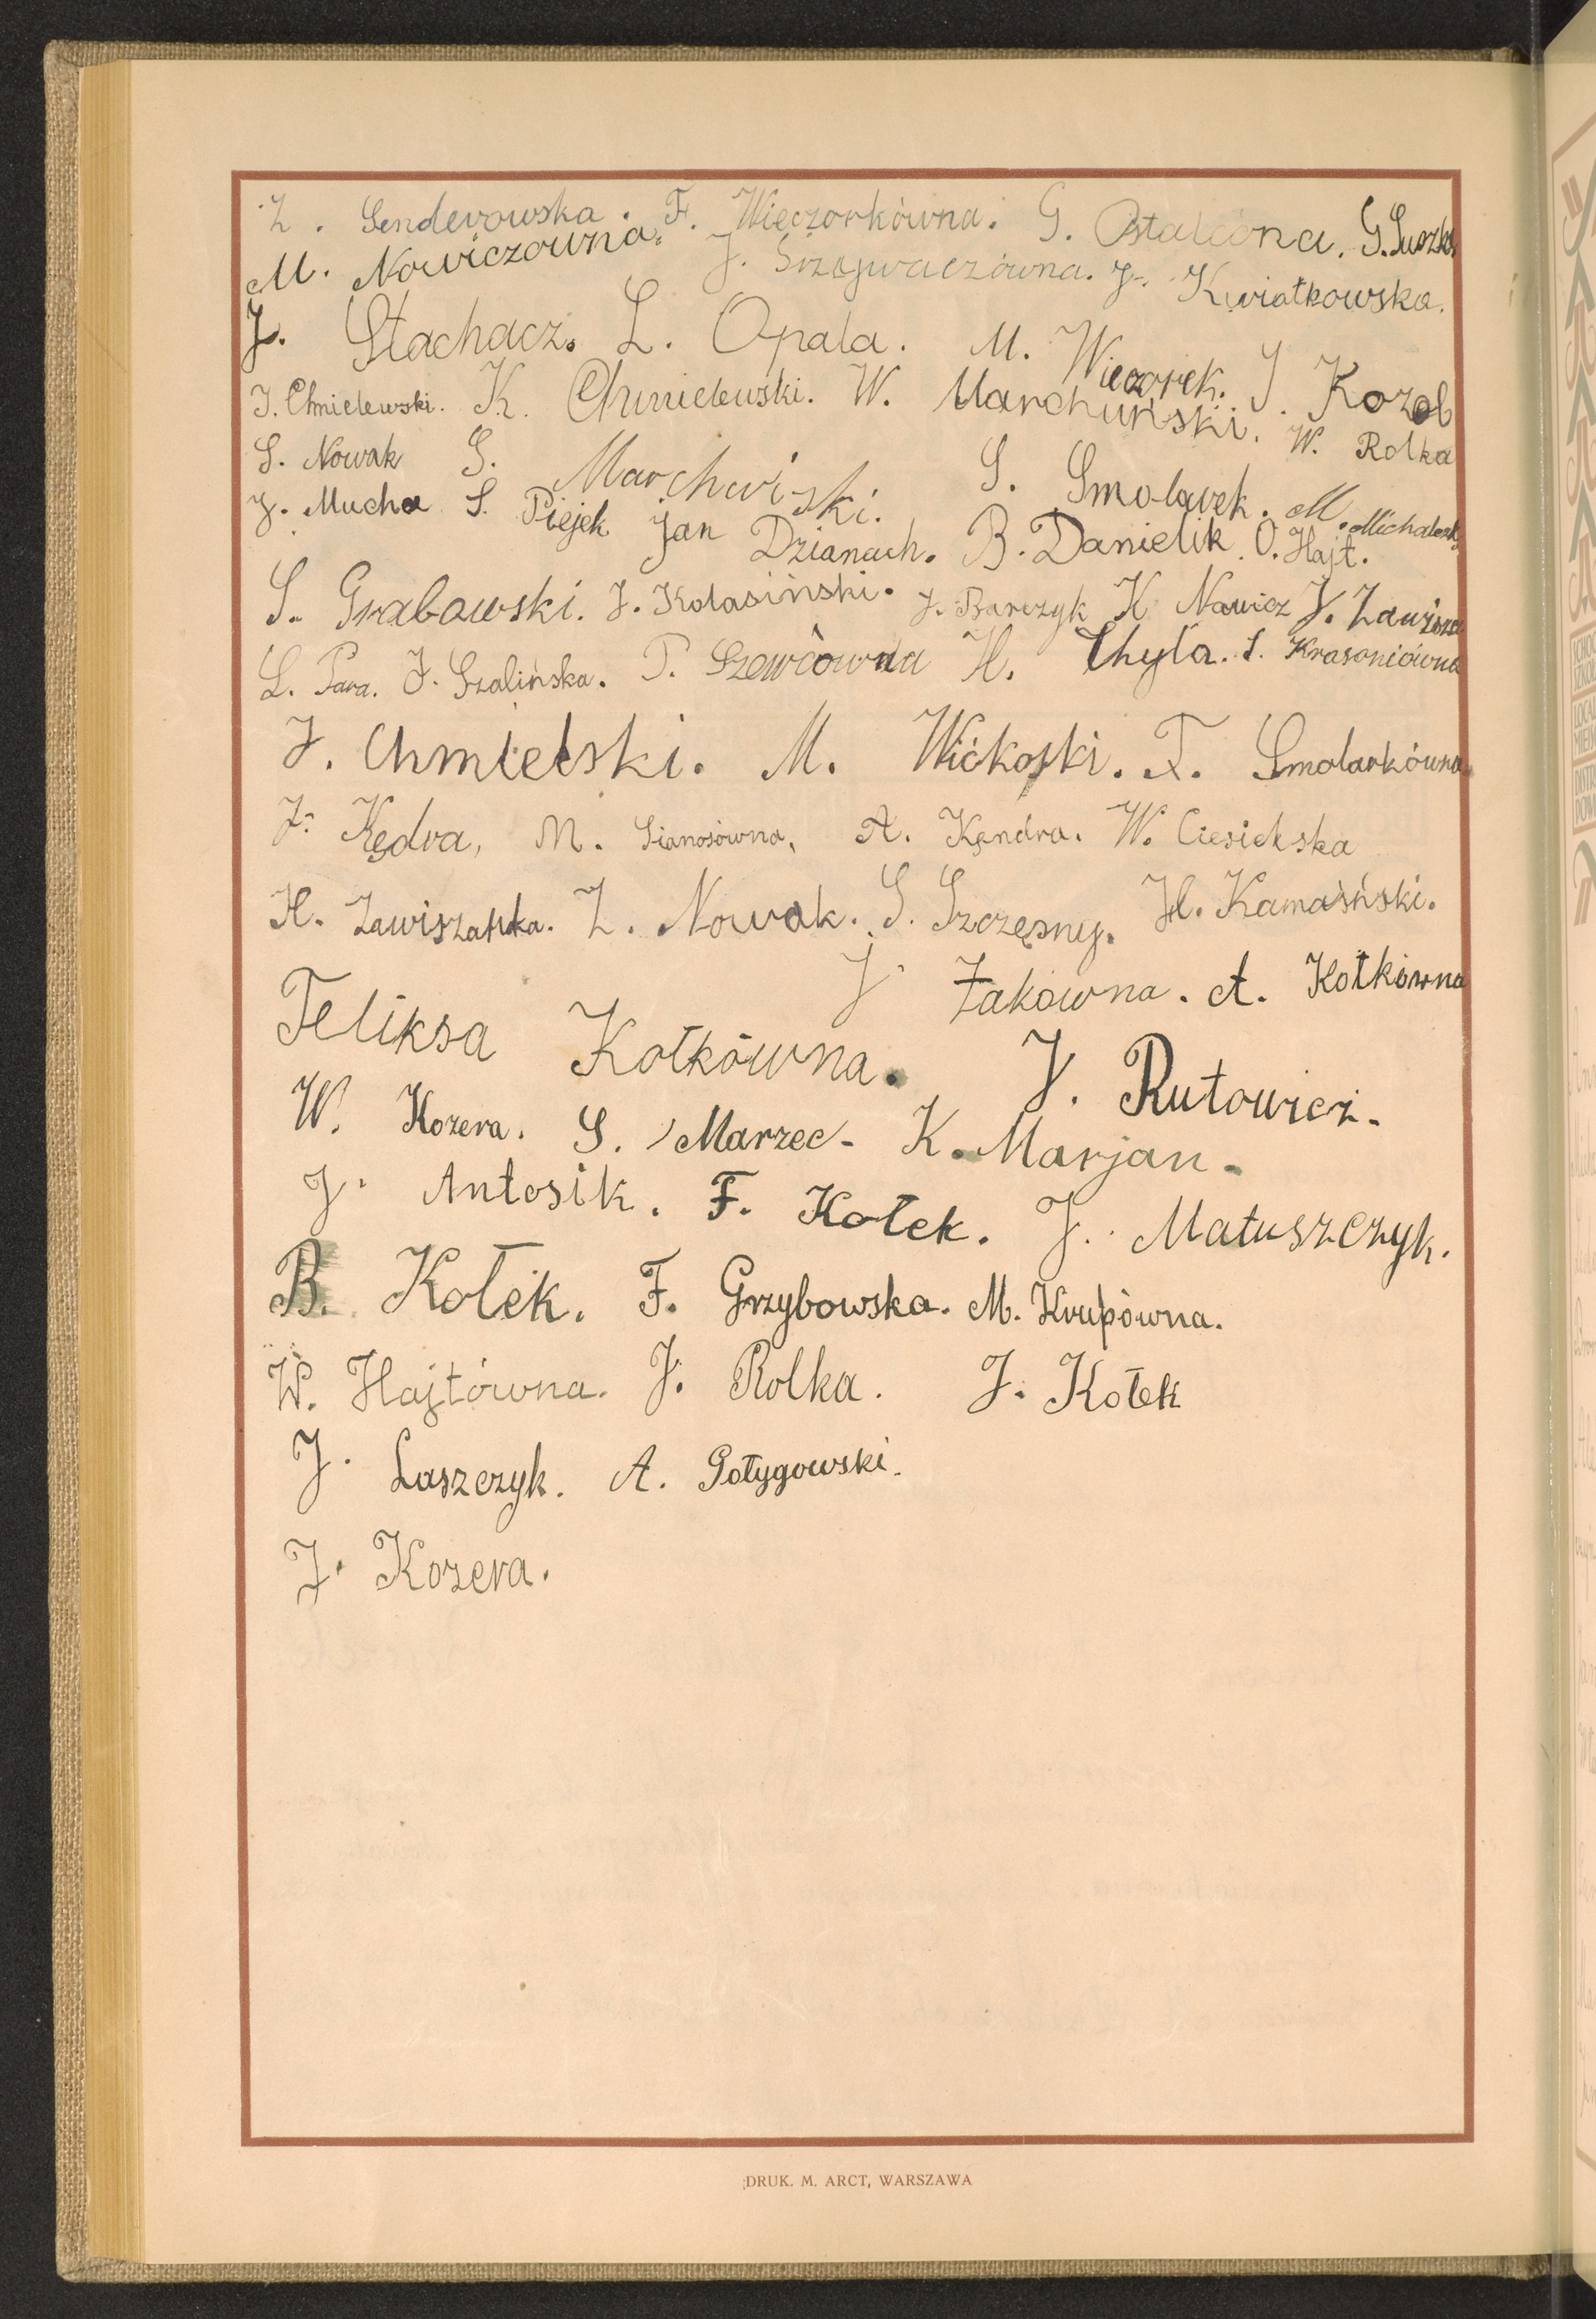 Z. Senderowska. F. Wieczorkówna. G. Ostalcóna. G. Suszka
M. Nowiczówna. J. J. Kwiatkowska.
J. Stachacz. L. Opala. M. Wieczorek. J. Kozoł
J. Chmielewski. K. Chmielewski. W. Marchuński. W. Rolka
S. Nowak S. Marchwiski. S. Smolarek. M. Michalesk
J. Mucha S. Piejek Jan Dzianach. B. Danielik O. Hajt.
S. Grabowski. J. Kolasiński. J. Barczyk K Nowicz J. Zawisza
L. Para. J. Szalińska. P. Szewcówna H. Chyła. S. Krasoniówna
J. Chmielski. M. Wićkoski. T. Smolarkówna
J. Kędra, M. Sianosówna, A. Kendra. W. Ciesielska
H. Zawiszanka. Z. Nowak. S. Szczęsny. H. Kamasiński.
J. Żakówna. A. Kołkówna
Feliksa Kołkówna. J. Rutowicz.
W. Kozera. S. Marzec. K. Marjan.
J. Antosik. F. Kołek. J. Matuszczyk.
B. Kołek. F. Grzybowska. M. Krupówna.
W. Hajtówna. J. Rolka. J. Kołek
J. Laszczyk. A. Gołygowski.
J. Kozera.
DRUK. M. ARCT, WARSZAWA